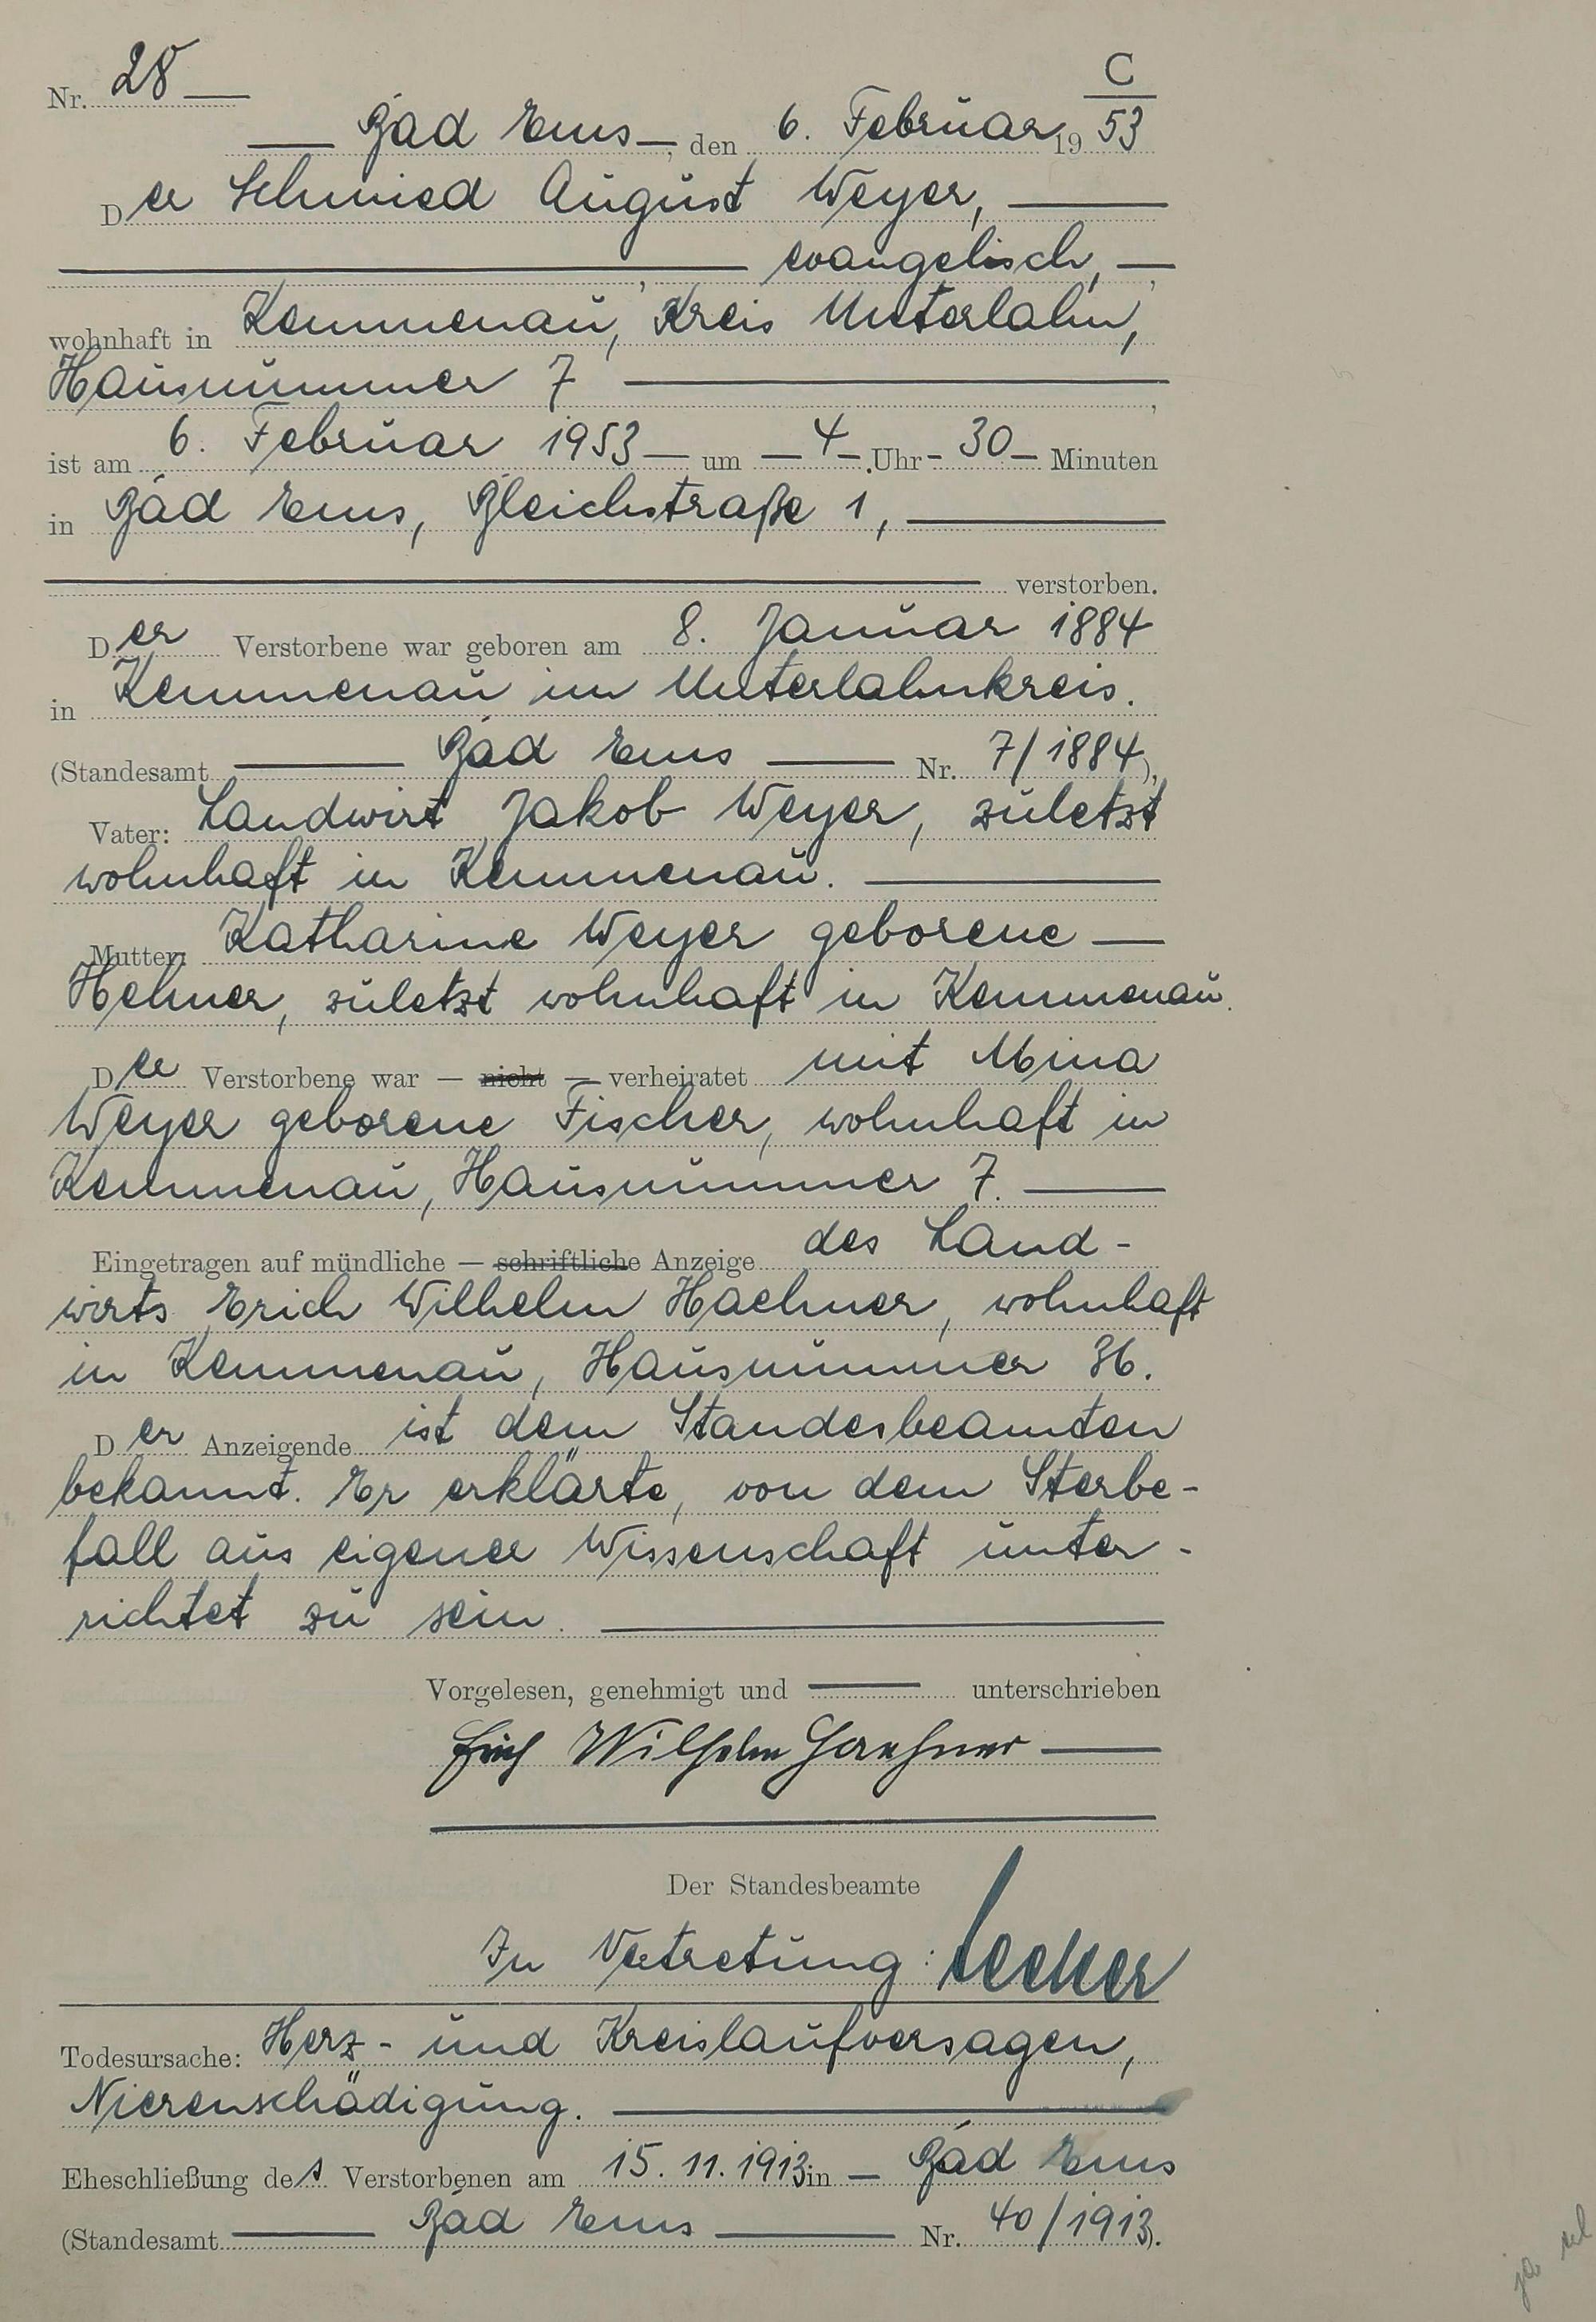 C
Nr. 28
Bad Ems, den 6. Februar 1953
Der Schmied August Weyer,
evangelisch,
wohnhaft in Kemmenau, Kreis Unterlahn,
Hausnummer 7
ist am 6. Februar 1953 um 4 Uhr 30 Minuten
in Bad Ems, Bleichstraße 1,
verstorben.
Der Verstorbene war geboren am 8. Januar 1884
in Kemmenau im Unterlahnkreis.
(Standesamt Bad Ems Nr. 7/1884),
Vater: Landwirt Jakob Weyer, zuletzt
wohnhaft in Kemmenau.
Mutter: Katharine Weyer geborene
Hehner, zuletzt wohnhaft in Kemmenau.
Der Verstorbene war — nicht — verheiratet mit Mina
Weyer geborene Fischer, wohnhaft in
Kemmenau, Hausnummer 7.
Eingetragen auf mündliche — schriftliche Anzeige des Land-
wirts Erich Wilhelm Haehner, wohnhaft
in Kemmenau, Hausnummer 36.
Der Anzeigende ist dem Standesbeamten
bekannt. Er erklärte, von dem Sterbe-
fall aus eigener Wissenschaft unter-
richtet zu sein.
Vorgelesen, genehmigt und unterschrieben
Erich Wilhelm Haehner
Der Standesbeamte
In Vertretung:
Todesursache: Herz- und Kreislaufversagen,
Nierenschädigung.
Eheschließung des Verstorbenen am 15.11.1913 in Bad Ems
(Standesamt Bad Ems Nr. 40/1913).